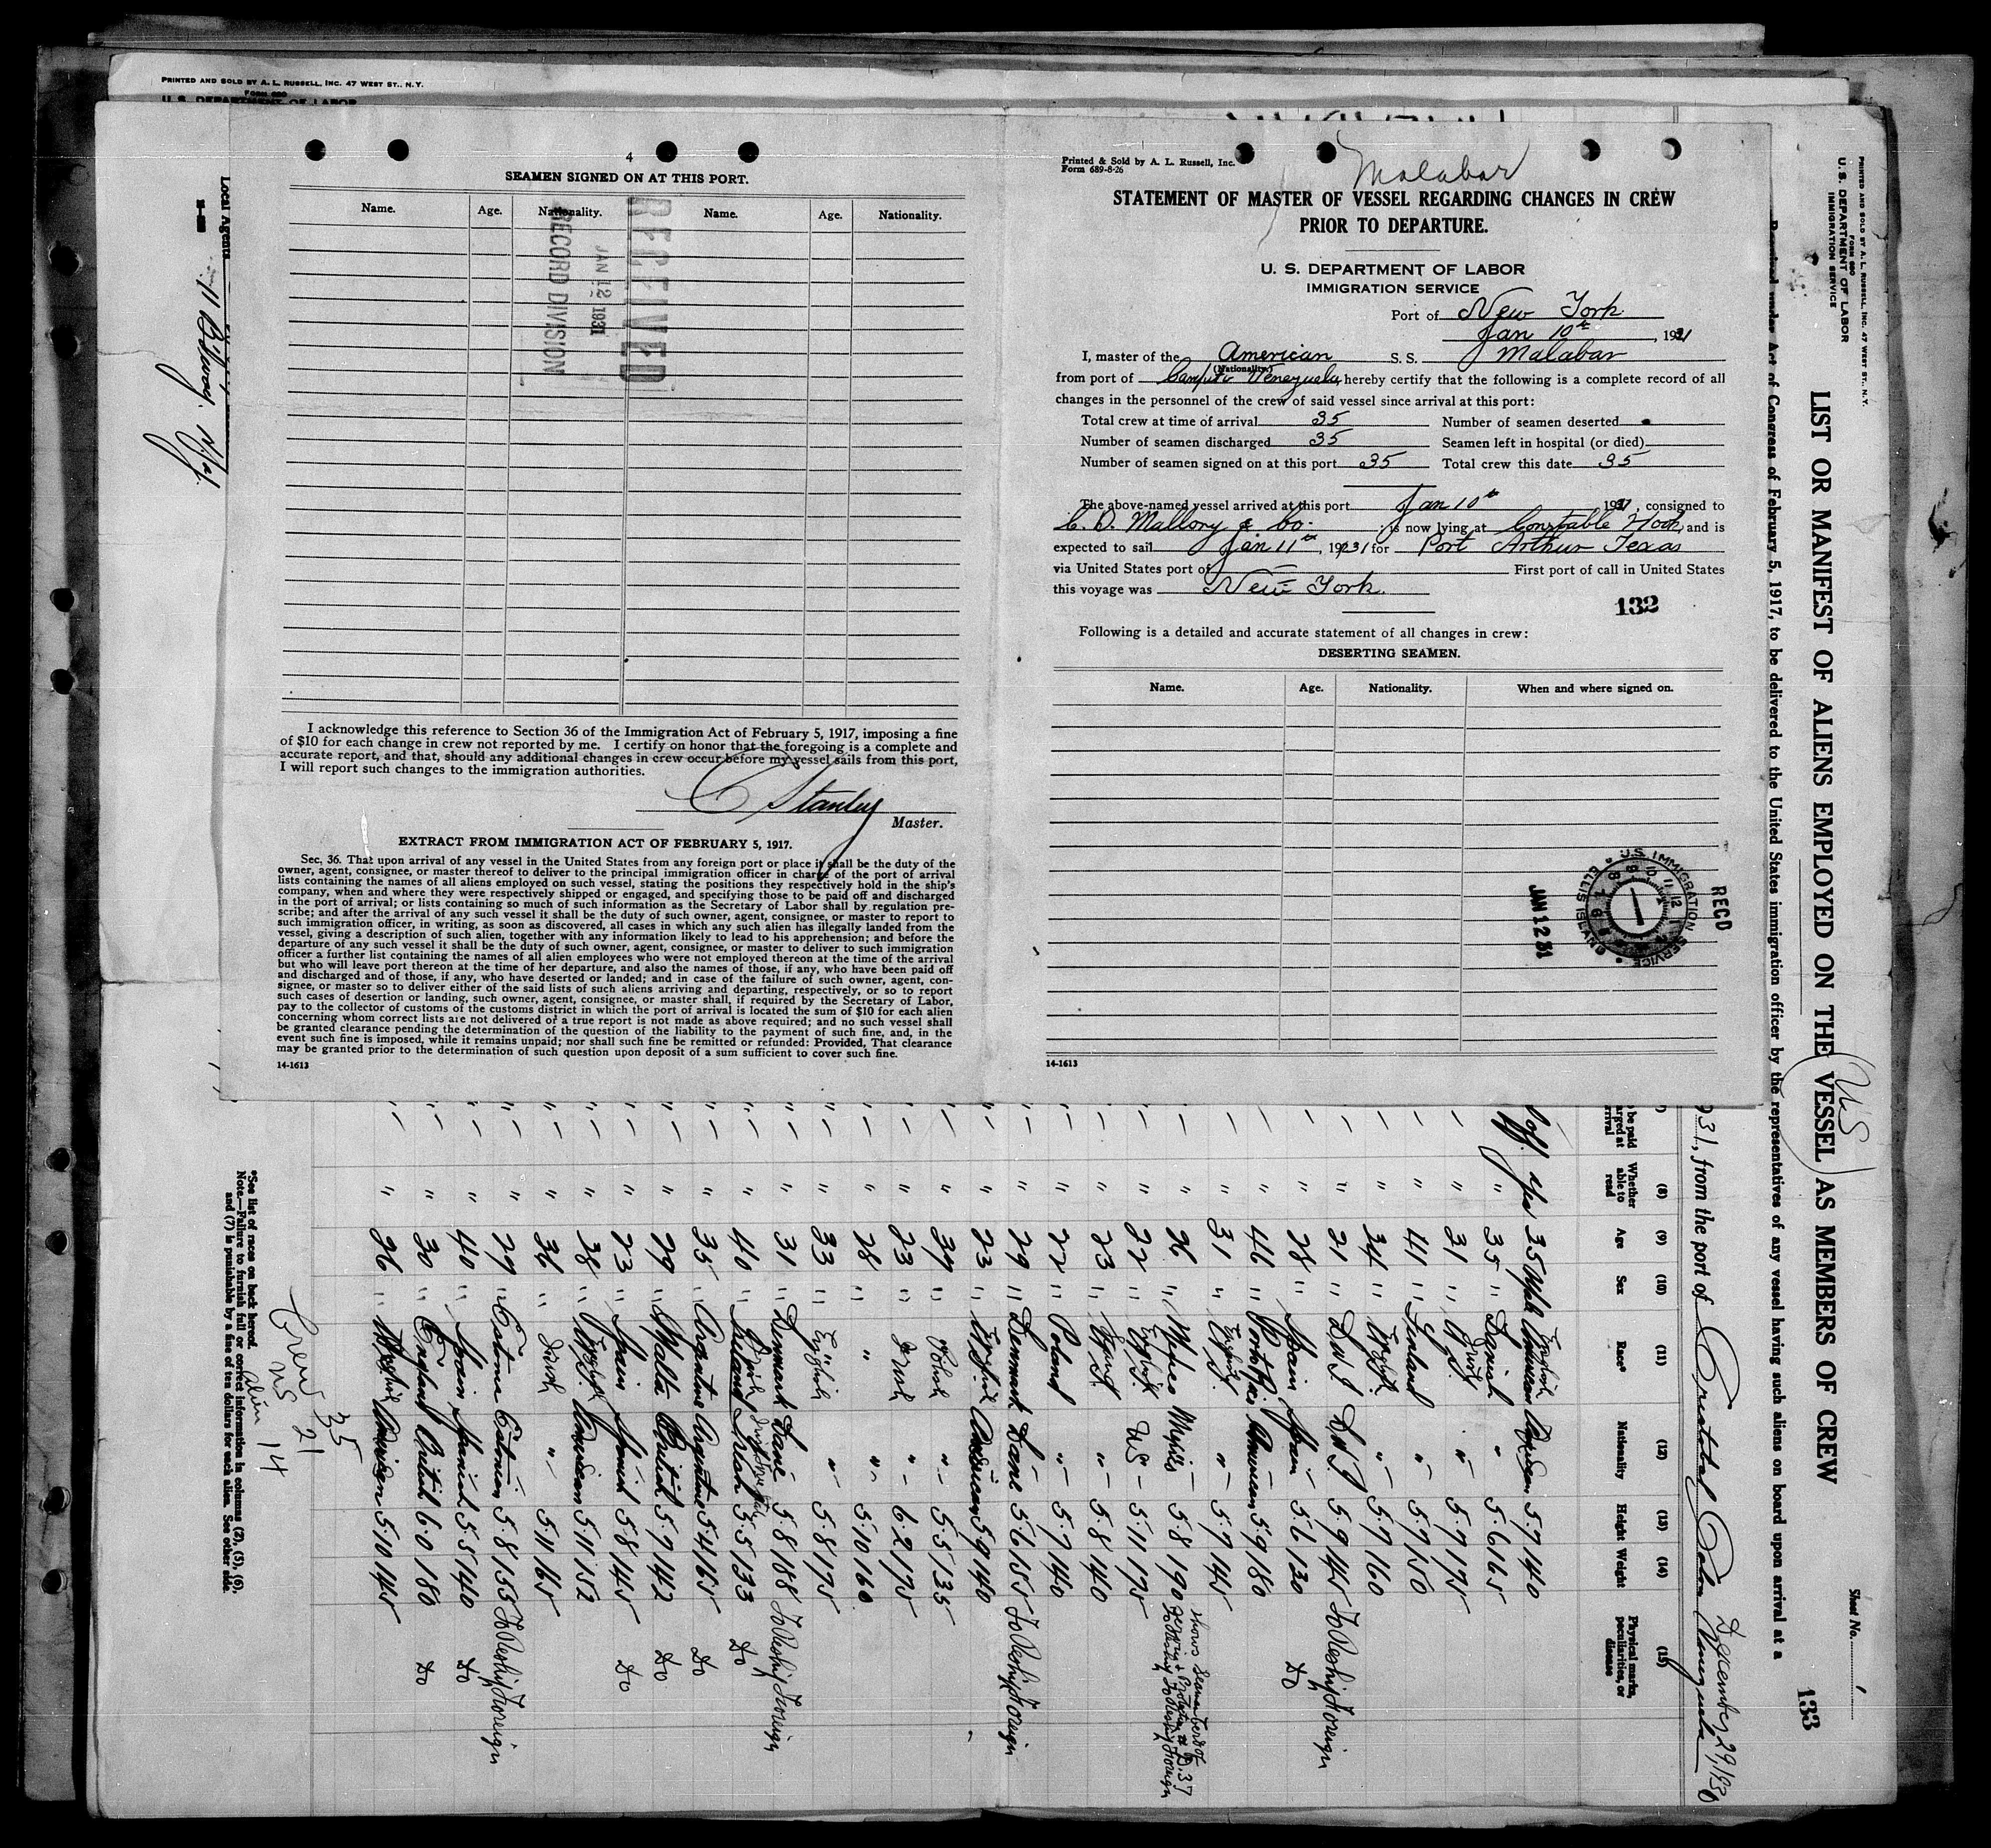 PRINTED AND SOLD BY A. L. RUSSELL, INC. 47 WEST ST., N.Y.
FORM 680
U. S. DEPARTMENT OF LABOR
4
SEAMEN SIGNED ON AT THIS PORT.
Name. Age. Nationality. Name. Age. Nationality.
RECEIVED
JAN 12 1931
RECORD DIVISION
I acknowledge this reference to Section 36 of the Immigration Act of February 5, 1917, imposing a fine
of $10 for each change in crew not reported by me. I certify on honor that the foregoing is a complete and
accurate report, and that, should any additional changes in crew occur before my vessel sails from this port,
I will report such changes to the immigration authorities.
C Stanley
Master.
EXTRACT FROM IMMIGRATION ACT OF FEBRUARY 5, 1917.
Sec. 36. That upon arrival of any vessel in the United States from any foreign port or place it shall be the duty of the
owner, agent, consignee, or master thereof to deliver to the principal immigration officer in charge of the port of arrival
lists containing the names of all aliens employed on such vessel, stating the positions they respectively hold in the ship's
company, when and where they were respectively shipped or engaged, and specifying those to be paid off and discharged
in the port of arrival; or lists containing so much of such information as the Secretary of Labor shall by regulation pre-
scribe; and after the arrival of any such vessel it shall be the duty of such owner, agent, consignee, or master to report to
such immigration officer, in writing, as soon as discovered, all cases in which any such alien has illegally landed from the
vessel, giving a description of such alien, together with any information likely to lead to his apprehension; and before the
departure of any such vessel it shall be the duty of such owner, agent, consignee, or master to deliver to such immigration
officer a further list containing the names of all alien employees who were not employed thereon at the time of the arrival
but who will leave port thereon at the time of her departure, and also the names of those, if any, who have been paid off
and discharged and of those, if any, who have deserted or landed; and in case of the failure of such owner, agent, con-
signee, or master so to deliver either of the said lists of such aliens arriving and departing, respectively, or so to report
such cases of desertion or landing, such owner, agent, consignee, or master shall, if required by the Secretary of Labor,
pay to the collector of customs of the customs district in which the port of arrival is located the sum of $10 for each alien
concerning whom correct lists are not delivered or a true report is not made as above required; and no such vessel shall
be granted clearance pending the determination of the question of the liability to the payment of such fine, and, in the
event such fine is imposed, while it remains unpaid; nor shall such fine be remitted or refunded: Provided, That clearance
may be granted prior to the determination of such question upon deposit of a sum sufficient to cover such fine.
14-1613
Printed & Sold by A. L. Russell, Inc.
Form 689-8-26
Malabar
STATEMENT OF MASTER OF VESSEL REGARDING CHANGES IN CREW
PRIOR TO DEPARTURE.
U. S. DEPARTMENT OF LABOR
IMMIGRATION SERVICE
Port of New York
Jan 10th, 1931
I, master of the American S. S. Malabar
(Nationality.)
from port of Venezuela, hereby certify that the following is a complete record of all
changes in the personnel of the crew of said vessel since arrival at this port:
Total crew at time of arrival 35 Number of seamen deserted
Number of seamen discharged 35 Seamen left in hospital (or died)
Number of seamen signed on at this port 35 Total crew this date 35
The above-named vessel arrived at this port Jan 10th 1931, consigned to
C. D. Mallory & Co. is now lying at Constable Hook, and is
expected to sail Jan 11th, 1931 for Port Arthur Texas
via United States port of First port of call in United States
this voyage was New York.
132
Following is a detailed and accurate statement of all changes in crew:
DESERTING SEAMEN.
Name. Age. Nationality. When and where signed on.
U.S. IMMIGRATION SERVICE ELLIS ISLAND
RECD
JAN 12 31
14-1613
PRINTED AND SOLD BY A. L. RUSSELL, INC. 47 WEST ST., N.Y.
FORM 680
U. S. DEPARTMENT OF LABOR
IMMIGRATION SERVICE
Sheet No. 1
133
LIST OR MANIFEST OF ALIENS EMPLOYED ON THE VESSEL AS MEMBERS OF CREW
U.S.
Required under Act of Congress of February 5, 1917, to be delivered to the United States immigration officer by the representatives of any vessel having such aliens on board upon arrival at a
December 29, 1930
931, from the port of Cristobal Colon Venezuela
(8) (9) (10) (11) (12) (13) (14) (15)
Whether able to read Age Sex Race* Nationality Height Weight Physical marks, peculiarities, or disease
off yes 35 Male English American 5.7 140
" 35 " Danish " 5.6 165
" 31 " Irish " 5.7 175
" 41 " Finland " 5.7 150
" 34 " English " 5.7 160
" 21 " D.W.I. D.W.I. 5.9 145 To Reship Foreign
" 28 " Spain Spain 5.6 130 Do
" 46 " American 5.9 180
" 31 " English " 5.7 145
" 26 " 5.8 190 To Reship Foreign
" 22 " English US 5.11 175
" 23 " " 5.8 140
" 22 " Poland " 5.7 140
" 29 " Denmark Dane 5.6 155 To Reship Foreign
" 23 " English American 5.9 140
" 39 " Polish " 5.5 135
" 23 " Irish " 6.2 175
" 28 " " " 5.10 160
" 33 " English " 5.8 175
" 31 " Denmark Dane 5.8 188 To Reship Foreign
" 40 " 5.5 133 Do
" 35 " Argentine Argentine 5.4 165 Do
" 29 " Malta British 5.7 142 Do
" 23 " Spain Spanish 5.8 145 Do
" 38 " English American 5.11 152
" 36 " Irish " 5.11 165
" 27 " Estonia Estonian 5.8 155 To Reship Foreign
" 40 " Spain Spanish 5.5 140 Do
" 30 " England British 6.0 180 Do
" 26 " English American 5.10 145
Crew 35
US 21
Alien 14
*See list of races on back hereof.
Note.—Failure to furnish full or correct information in columns (2), (5), (6),
and (7) is punishable by a fine of ten dollars for each alien. See other side.
Local Agents
11 Broadway. N.Y.